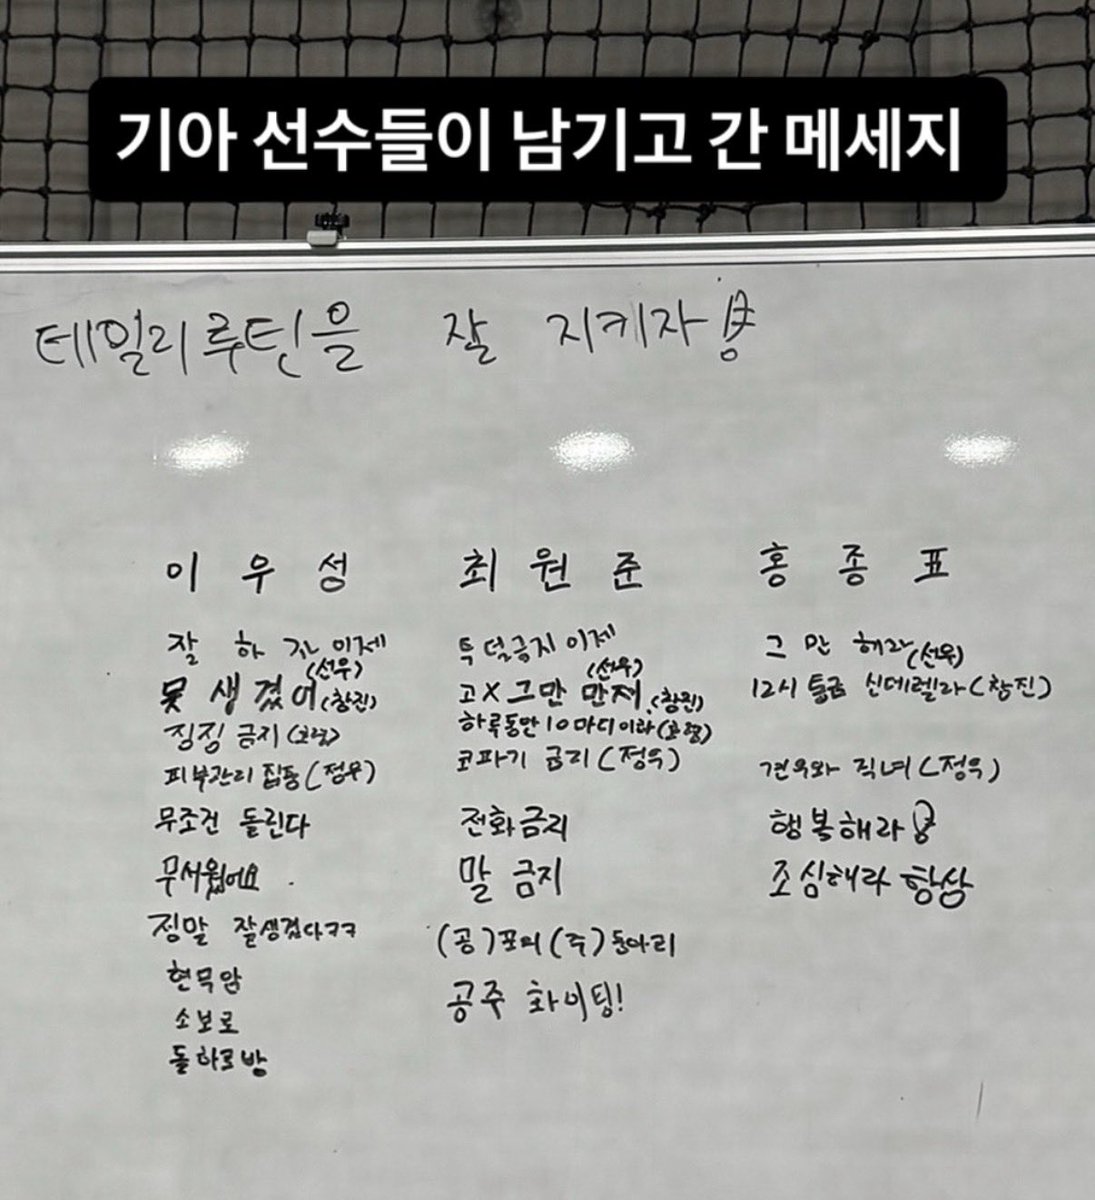 기아 선수들이 남기고 간 메세지
테일리루틴을 잘 지키자
이우성
잘하자 이제 (선우)
못생겼어 (창진)
징징 금지 (호령)
피부관리 집중 (정우)
무조건 돌린다
무서웠어요.
정말 잘생겼다ㅋㅋ
현무암
소보로
돌하르방
최원준
투덜금지 이제 (선우)
고X그만 만져. (창진)
하루동안 10마디이하 (호령)
코파기 금지 (정우)
전화금지
말 금지
(공)포의 (주)둥아리
공주 화이팅!
홍종표
그만 해라 (선우)
12시 통금 신데렐라 (창진)
견우와 직녀 (정우)
행복해라
조심해라 항상